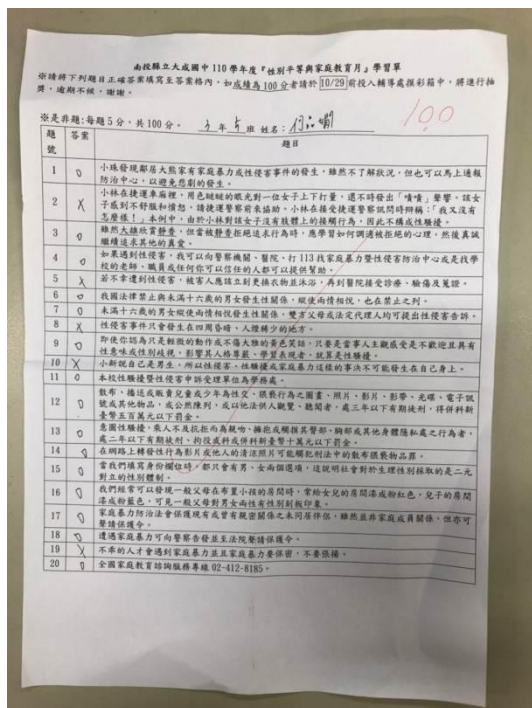 南投縣立大成國中 110 學年度『性別平等與家庭教育月』學習單
※請將下列題目正確答案填寫至答案格內，如成績為 100 分者請於 10/29 前投入輔導處摸彩箱中，將進行抽
獎，逾期不候，謝謝。
100
※是非題:每題 5 分，共 100 分。 3 年 5 班 姓名:
題號 答案 題目
1 O 小珠發現鄰居大熊家有家庭暴力或性侵害事件的發生，雖然不了解狀況，但也可以馬上通報
防治中心，以避免悲劇的發生。
2 X 小林在捷運車廂裡，用色瞇瞇的眼光對一位女子上下打量，還不時發出「嘖嘖」聲響，該女
子感到不舒服和憤怒，請捷運警察前來協助。小林在接受捷運警察訊問時辯稱：「我又沒有
怎麼樣！」本例中，由於小林對該女子沒有肢體上的接觸行為，因此不構成性騷擾。
3 O 雖然大雄欣賞靜香，但當被靜香拒絕追求行為時，應學習如何調適被拒絕的心理，然後真誠
繼續追求其他的真愛。
4 O 如果遇到性侵害，我可以向警察機關、醫院、打 113 找家庭暴力暨性侵害防治中心或是找學
校的老師、職員或任何你可以信任的人都可以提供幫助。
5 X 若不幸遭到性侵害，被害人應該立刻更換衣物並沐浴，再到醫院接受診療、驗傷及蒐證。
6 O 我國法律禁止與未滿十六歲的男女發生性關係，縱使兩情相悅，也在禁止之列。
7 O 未滿十六歲的男女縱使兩情相悅發生性關係，雙方父母或法定代理人均可提出性侵害告訴。
8 X 性侵害事件只會發生在四周昏暗、人煙稀少的地方。
9 O 即使你認為只是輕微的動作或不傷大雅的黃色笑話，只要是當事人主觀感受是不歡迎且具有
性意味或性別歧視，影響其人格尊嚴、學習表現者，就算是性騷擾。
10 X 小新說自己是男生，所以性侵害、性騷擾或家庭暴力這樣的事決不可能發生在自己身上。
11 O 本校性騷擾暨性侵害申訴受理單位為學務處。
12 O 散布、播送或販賣兒童或少年為性交、猥褻行為之圖畫、照片、影片、影帶、光碟、電子訊
號或其他物品，或公然陳列，或以他法供人觀覽、聽聞者，處三年以下有期徒刑，得併科新
臺幣五百萬元以下罰金。
13 O 意圖性騷擾，乘人不及抗拒而為親吻、擁抱或觸摸其臀部、胸部或其他身體隱私處之行為者，
處二年以下有期徒刑、拘役或科或併科新臺幣十萬元以下罰金。
14 O 在網路上轉發性行為影片或他人的清涼照片可能觸犯刑法中的散布猥褻物品罪。
15 O 當我們填寫身份欄位時，都只會有男、女兩個選項，這說明社會對於生理性別採取的是二元
對立的性別體制。
16 O 我們經常可以發現一般父母在布置小孩的房間時，常給女兒的房間漆成粉紅色，兒子的房間
漆成粉藍色，可見一般父母對男女兩性有性別刻板印象。
17 O 家庭暴力防治法會保護現有或曾有親密關係之未同居伴侶，雖然並非家庭成員關係，但亦可
聲請保護令。
18 O 遭遇家庭暴力可向警察告發並至法院聲請保護令。
19 X 不幸的人才會遇到家庭暴力並且家庭暴力要保密，不要張揚。
20 O 全國家庭教育諮詢服務專線 02-412-8185。